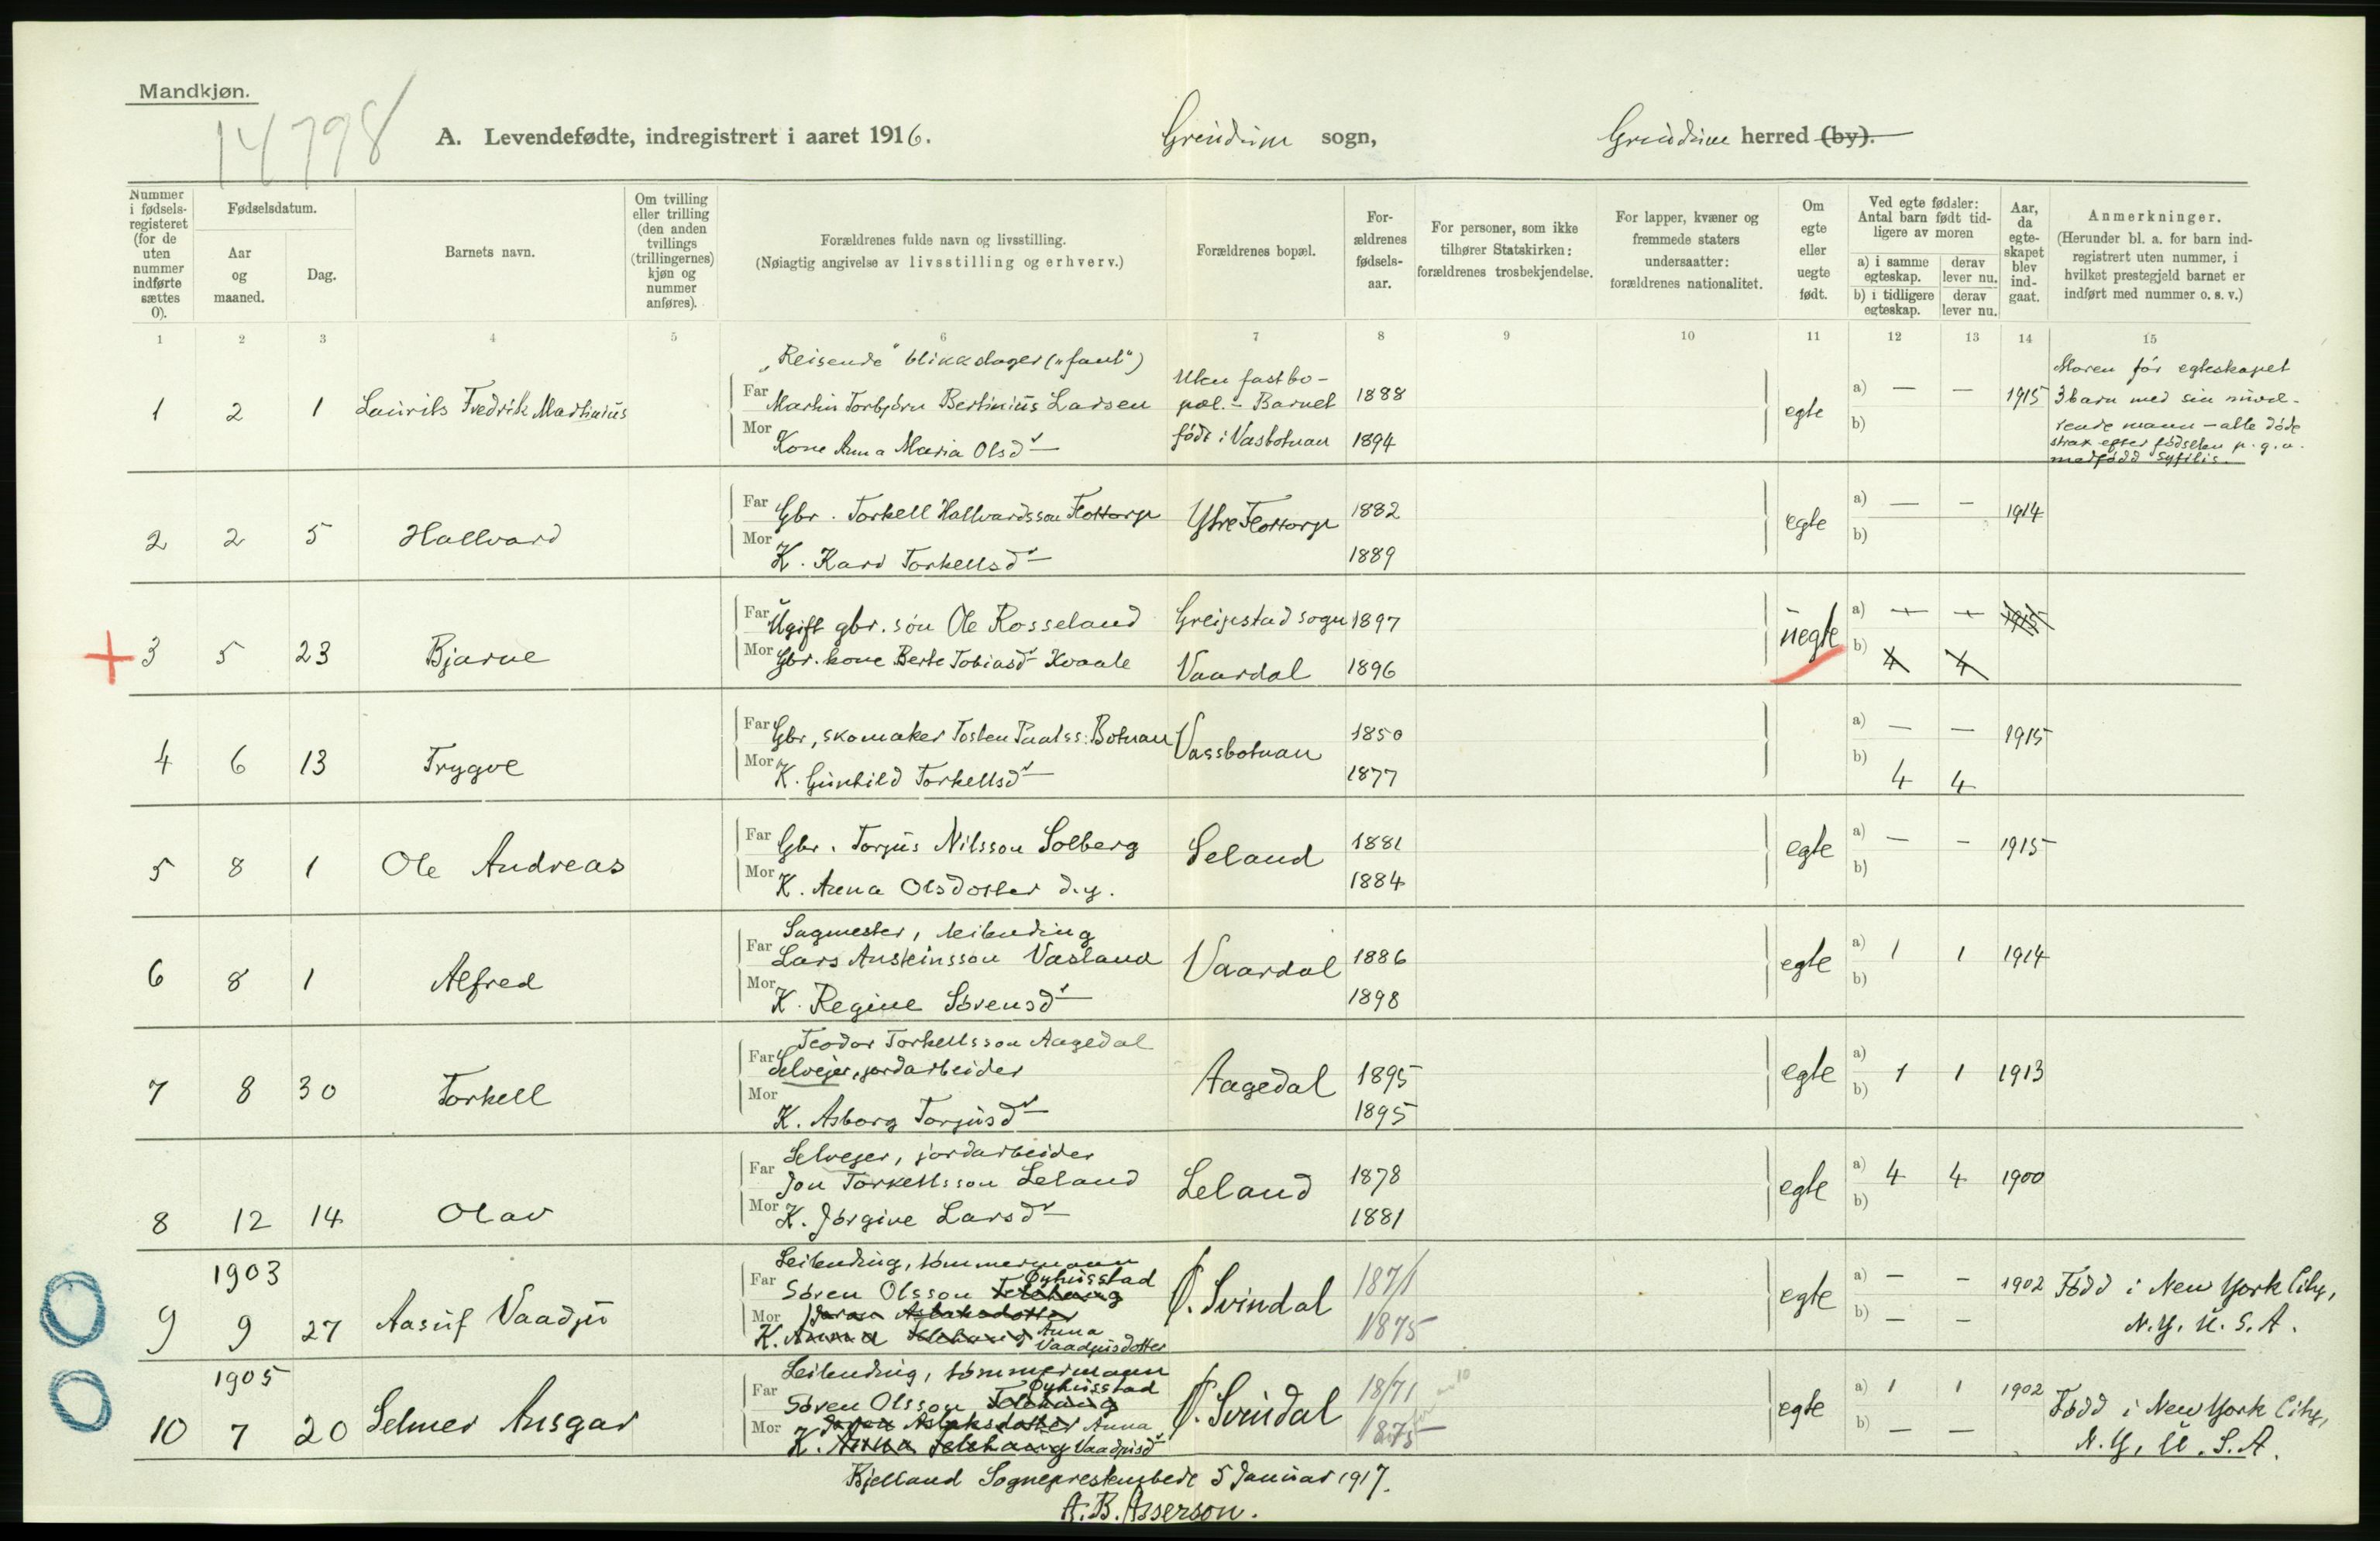 Mandkjøn.
14798
A. Levendefødte, indregistrert i aaret 1916. Grindum sogn, Grindum herred (by).
Nummer i fødsels-registeret (for de uten nummer indførte sættes 0).
Fødselsdatum.
Aar og maaned.
Dag.
Barnets navn.
Om tvilling eller trilling (den anden tvillings (trillingernes) kjøn og nummer anføres).
Forældrenes fulde navn og livsstilling.
(Nøiagtig angivelse av livsstilling og erhverv.)
Forældrenes bopæl.
For-ældrenes fødsels-aar.
For personer, som ikke tilhører Statskirken: forældrenes trosbekjendelse.
For lapper, kvæner og fremmede staters undersaatter: forældrenes nationalitet.
Om egte eller uegte født.
Ved egte fødsler: Antal barn født tid-ligere av moren
a) i samme egteskap. derav lever nu.
b) i tidligere egteskap. derav lever nu.
Aar, da egte-skapet blev ind-gaat.
Anmerkninger.
(Herunder bl. a. for barn ind-registrert uten nummer, i hvilket prestegjeld barnet er indført med nummer o. s. v.)
1 2 3 4 5 6 7 8 9 10 11 12 13 14 15
"Reisende" blikkslager ("fant")
1 2 1 Laurits Fredrik Martinius
Far Martin Torbjørn Bertinius Larsen
Mor Kone Anna Maria Olsdr
Uten fast bo-
pæl. - Barnet
født i Vasbotnan
1888
1894
egte a) — — b) 1915
Moren før egteskapet
3 barn med sin nuvæ-
rende mann - alle døde
strax efter fødselen p. g. a.
medfødd syfilis.
2 2 5 Hallvard
Far Gbr. Torkell Hallvardsson Flottorp
Mor K. Kari Torkellsdr
Ytre Flottorp
1882
1889
egte a) — — b) 1914
+ 3 5 23 Bjarne
Far Ugift gbr. søn Ole Rosseland
Mor Gbr. kone Berte Tobiasdr Kvaale
Greipstad sogn
Vaardal
1897
1896
uegte a) — — b) 4 4 1915
4 6 13 Trygve
Far Gbr, skomaker Tosten Paalss. Botnan
Mor K. Gunhild Torkellsdr
Vassbotnan
1850
1877
a) — — b) 4 4 1915
5 8 1 Ole Andreas
Far Gbr. Torjus Nilsson Solberg
Mor K. Anna Olsdotter d.y.
Leland
1881
1884
egte a) — — b) 1915
6 8 1 Alfred
Sagmester, leilending
Far Lars Austeinsson Vasland
Mor K. Regine Sørensdr
Vaardal
1886
1898
egte a) 1 1 b) 1914
7 8 30 Torkell
Teodor Torkellsson Aagedal
Far Selvejer, jordarbeider
Mor K. Asborg Torjusdr
Aagedal
1895
1895
egte a) b) 1 1 1913
8 12 14 Olav
Selvejer, jordarbeider
Far Jon Torkellsson Leland
Mor K. Jørgine Larsdr
Leland
1878
1881
egte a) 4 4 b) 1900
1903
9 9 27 Aasulf Vaadju
Leilending, tømmermann
Øyhusstad
Far Søren Olsson Telehaug
Mor Jøran Aslaksdotter
K. Anna Telehaug Anna
Vaadjusdotter
Ø. Svindal
1871
1875
egte a) — — b) — — 1902
Fødd i New York City,
N.Y. U. S. A.
1905
10 7 20 Selmer Ansgar
Leilending, tømmermann
Øyhusstad
Far Søren Olsson Telehaug
Mor Jøran Aslaksdotter Anna
K. Anna Telehaug Vaadjusdr
Ø. Svindal
1871
1875
egte a) 1 1 b) — — 1902
Fødd i New York City,
N.Y, U. S. A.
Bjelland Sogneprestembede 5 Januar 1917.
A. B. Asserson.